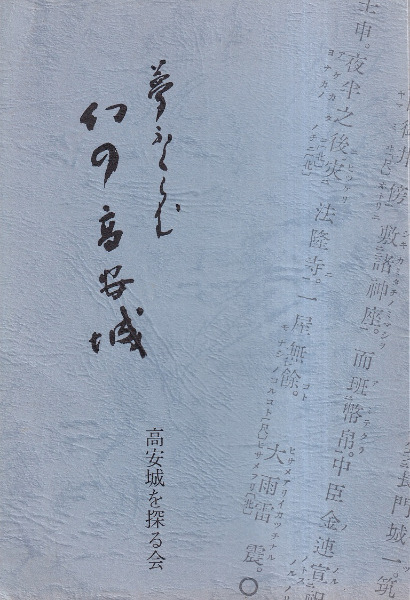 長門城一。筑
御井傍。敷諸神座。而班幣帛。中臣金連宣祝
壬申。夜半之後災法隆寺。一屋無餘。大雨雷震。
夢ふくらむ
幻の高安城
高安城を探る会